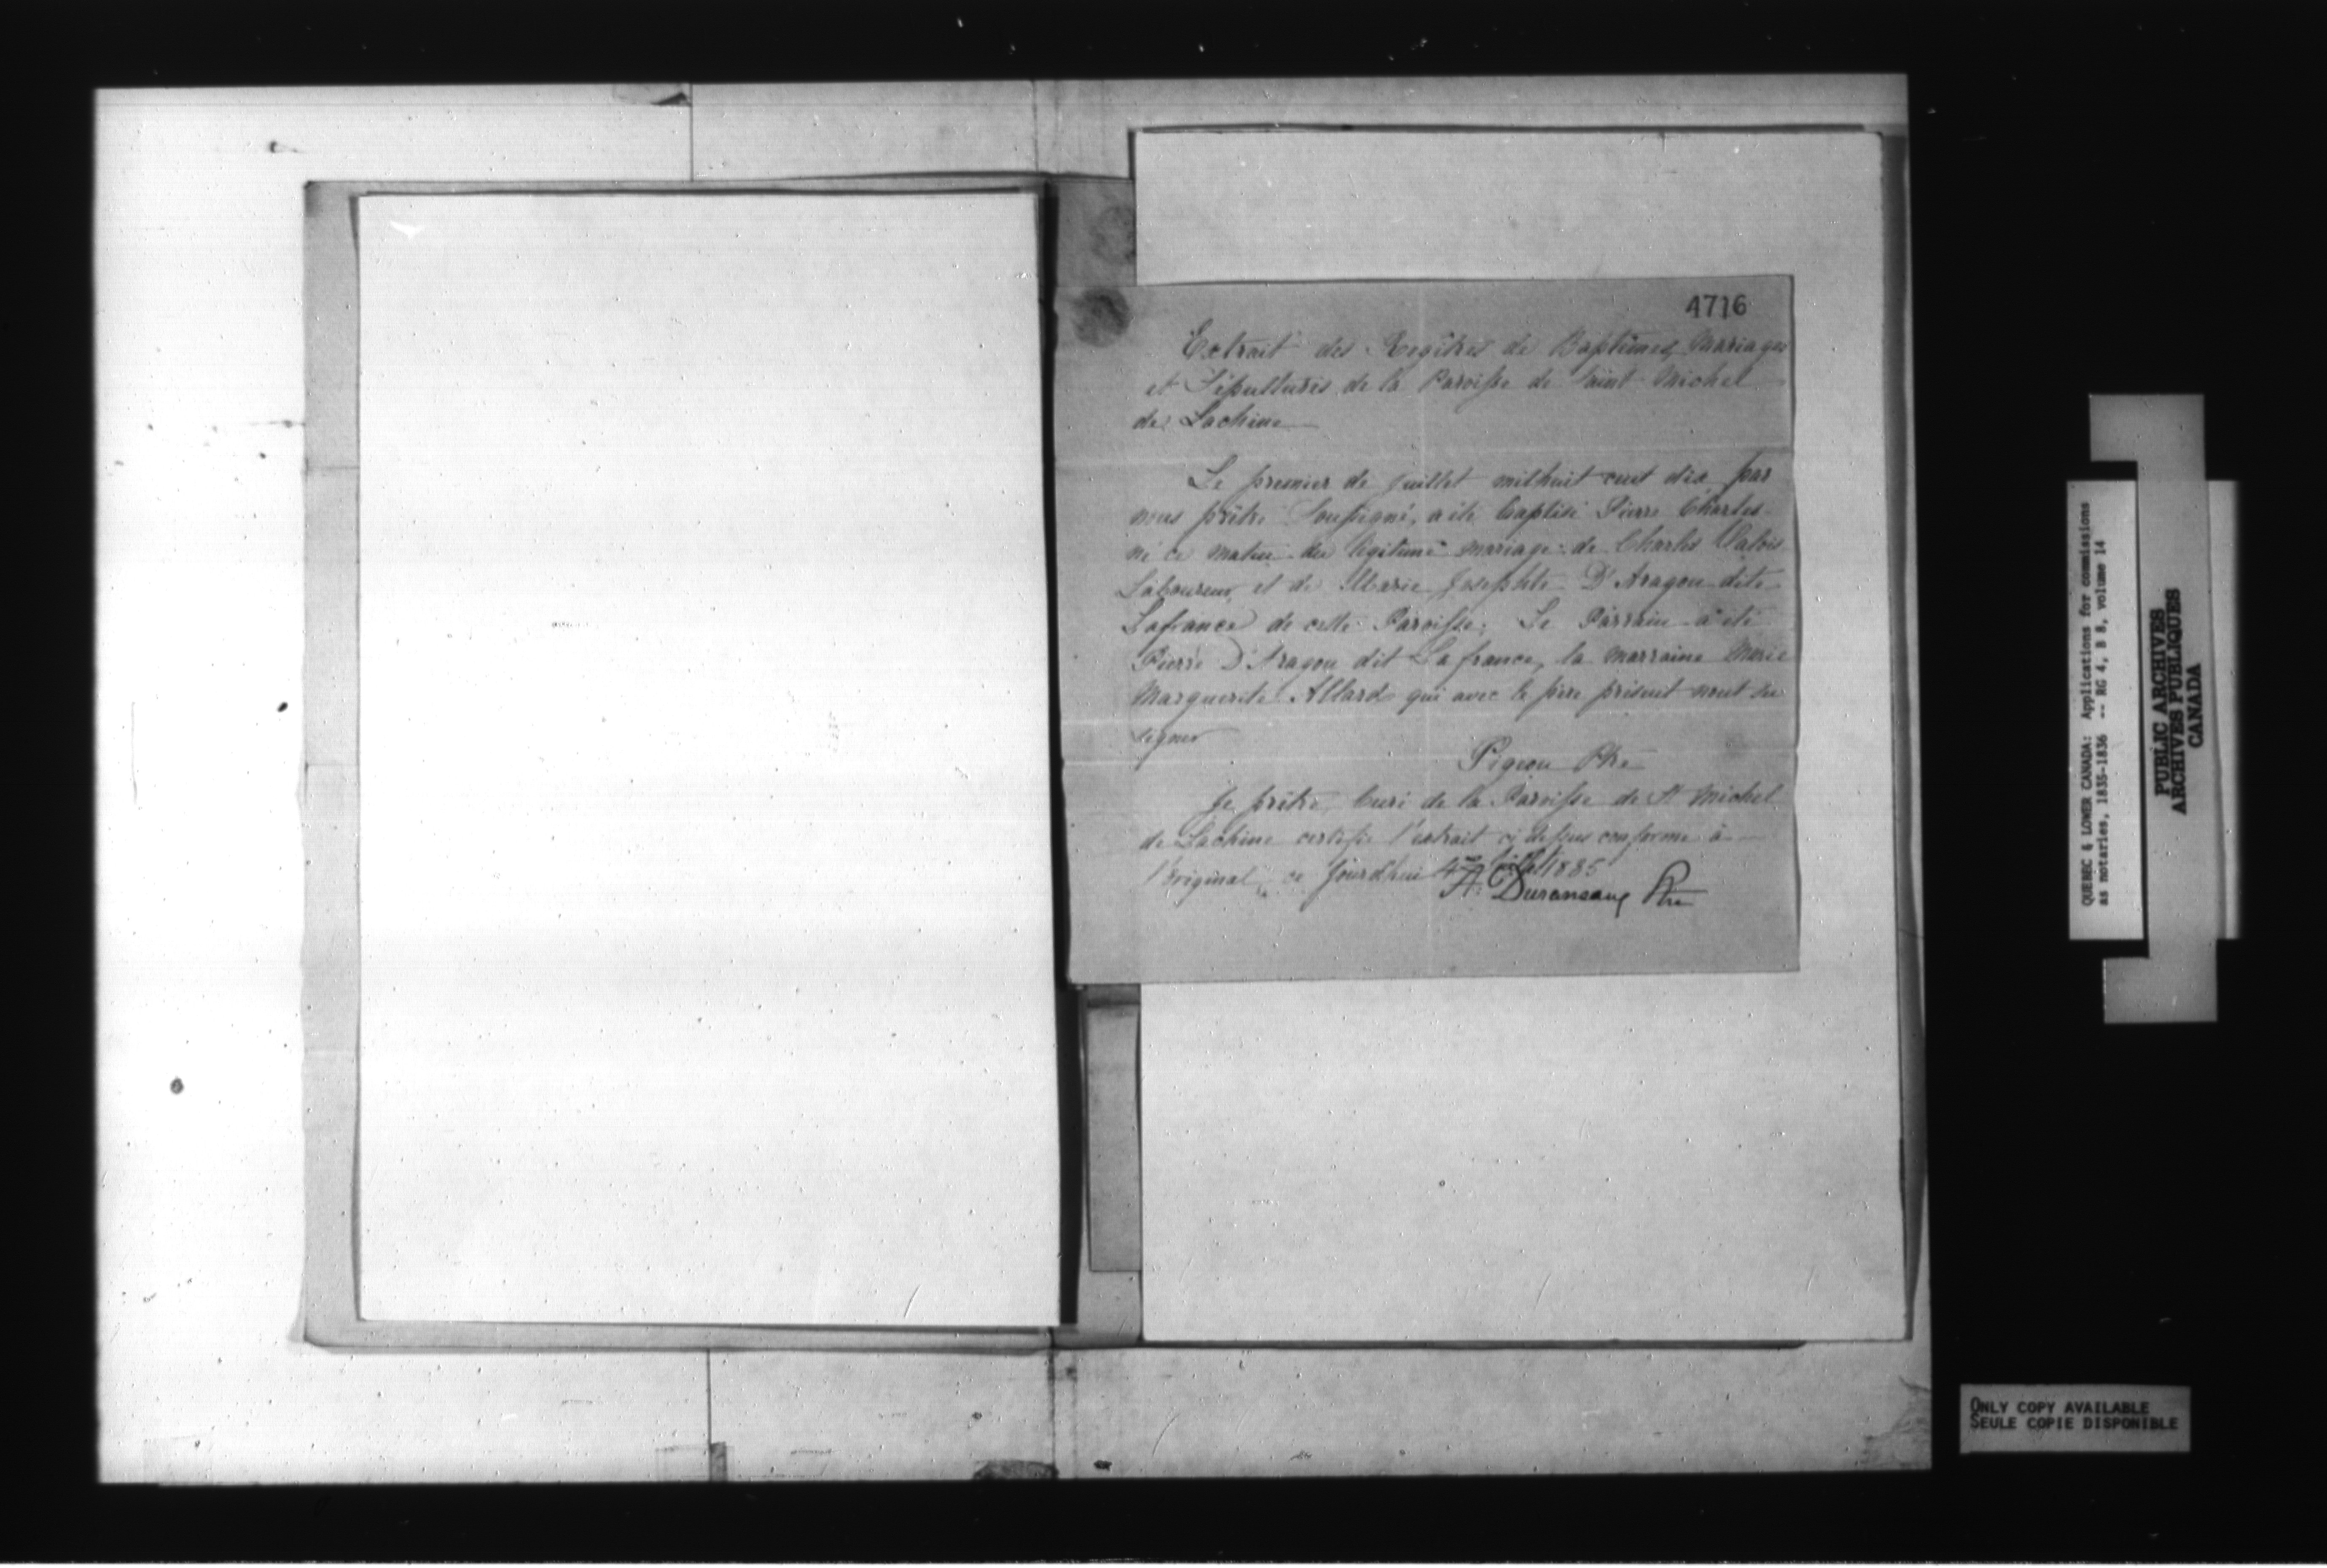 4716
Extrait des Regîtres de Baptêmes, Mariages
et Sépultures de la Paroisse de Saint-Michel
de Lachine
Le premier de juillet mil huit cent dix par
nous prêtre Soussigné, a été baptisé Pierre Charles
né ce matin du légitime mariage de Charles Valois
Laboureur, et de Marie Josephte D'Aragon dite
Lafrance de cette Paroisse; Le Parrain a été
Pierre D'Aragon dit Lafrance, la marraine Marie
Marguerite Allard qui avec le père présent n'ont su
signer
Pigeon Ptre
Je prêtre, Curé de la Paroisse de St Michel
de Lachine certifie l'extrait ci dessus conforme à
l'original, ce jourd'hui Juillet 1835
A. Duranseau Ptre
QUEBEC & LOWER CANADA: Applications for commissions
as notaries, 1835-1836 -- RG 4, B 8, volume 14
PUBLIC ARCHIVES
ARCHIVES PUBLIQUES
CANADA
ONLY COPY AVAILABLE
SEULE COPIE DISPONIBLE